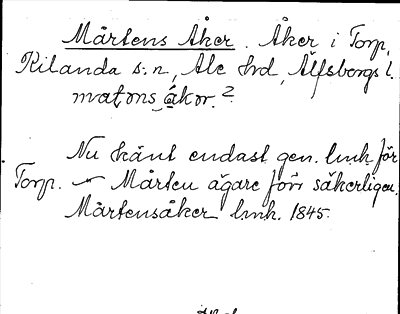 Mårtens Åker. Åker i Torp,
Kilanda s:n, Ale hrd, Älfsborgs l.
matǝns åkǝr. 2
Nu känt endast gen. lmk för
Torp. — Mårten ägare förr säkerligen.
Mårtensåker lmk. 1845.